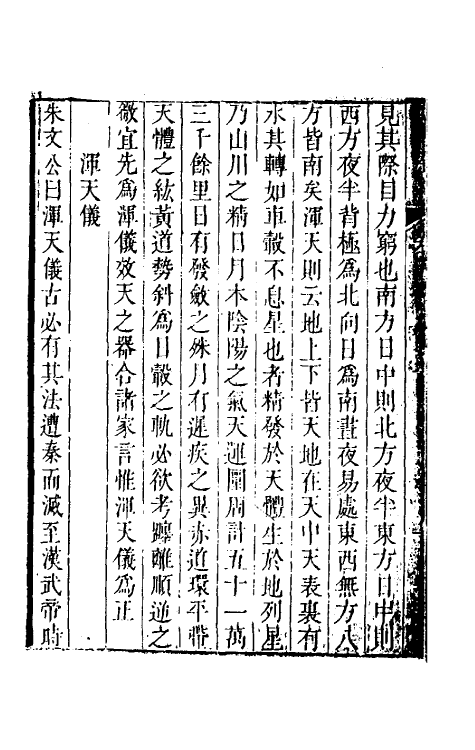 見其際目力窮也南方日中則北方夜半東方日中則
西方夜半背極為北向日為南晝夜易處東西無方八
方皆南矣渾天則云地上下皆天地在天中天表裏有
水其轉如車轂不息星也者精發於天體生於地列星
乃山川之精日月本陰陽之氣天運圍周計五十一萬
三千餘里日有發斂之殊月有遲疾之異赤道環平帶
天體之紘黃道勢斜為日轂之軌必欲考躔離順逆之
徵宜先為渾儀效天之器合諸家言惟渾天儀為正
渾天儀
朱文公曰渾天儀古必有其法遭秦而滅至漢武帝時